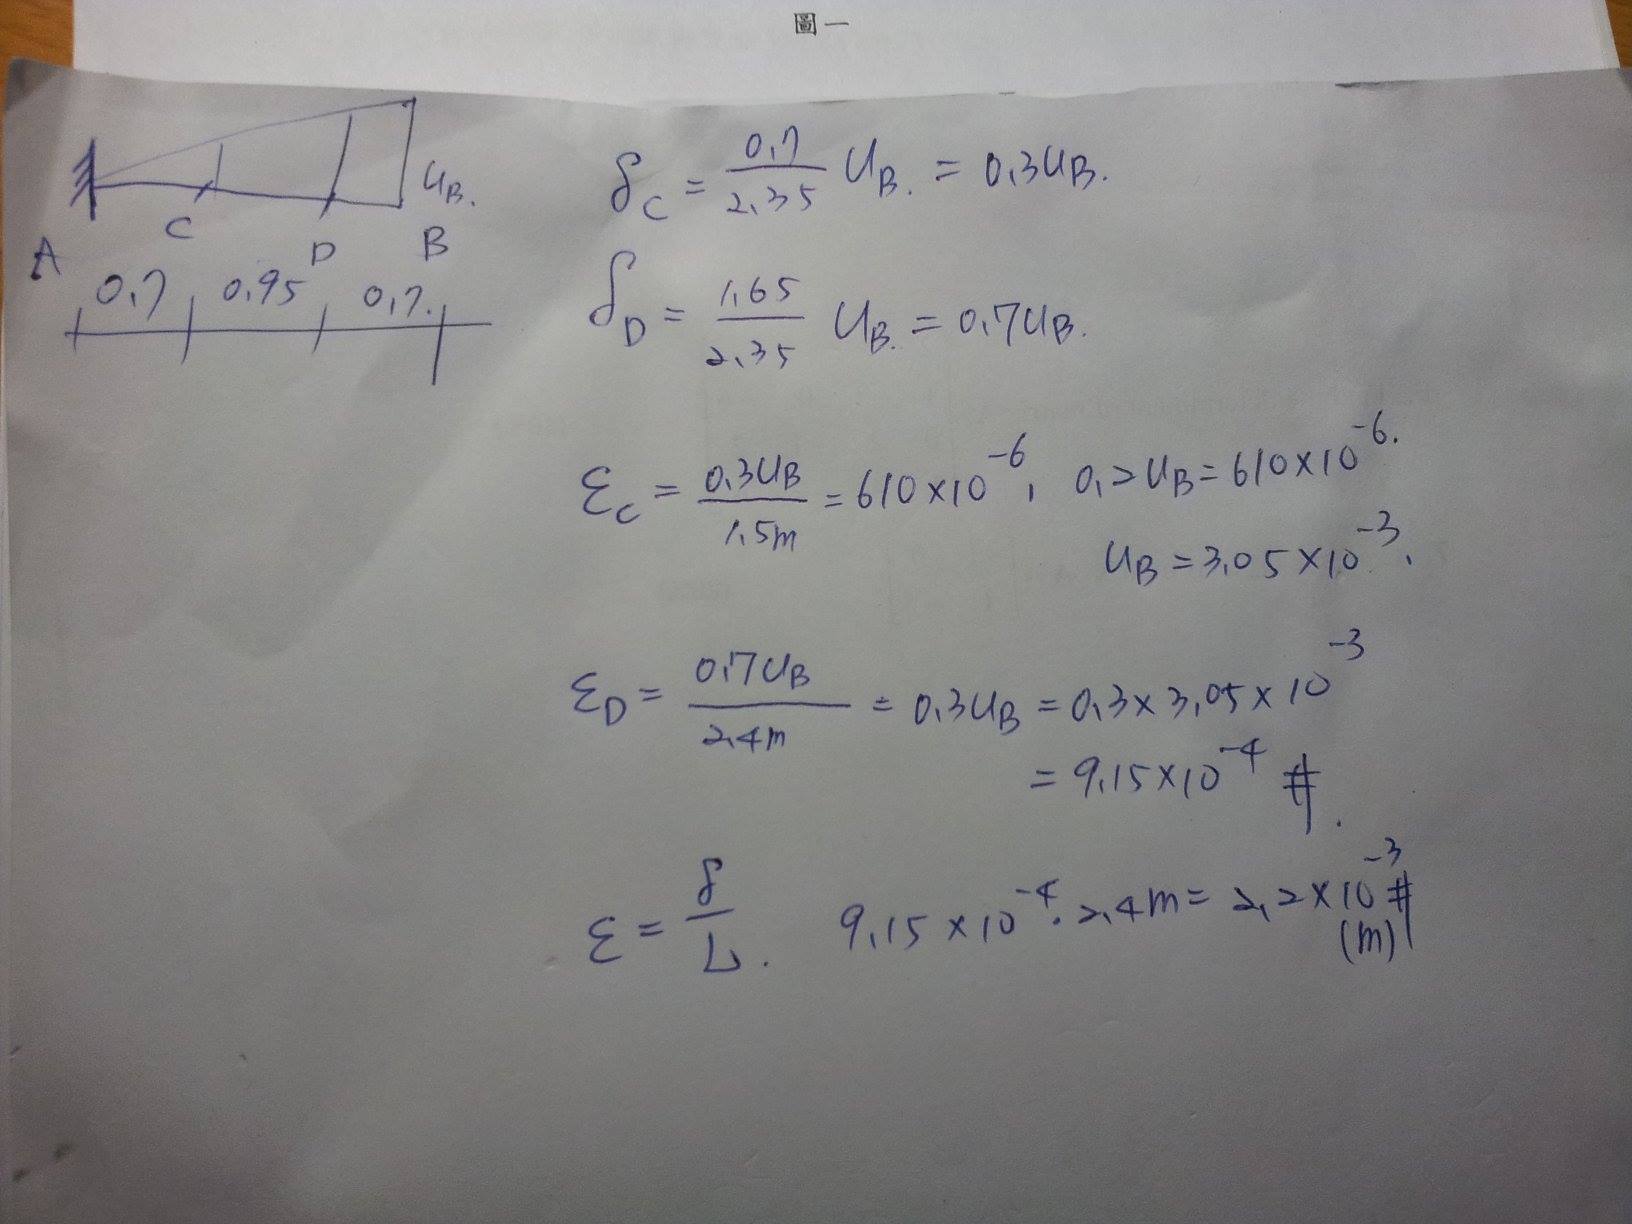 圖一
δC = 0.7/2.35 UB. = 0.3UB.
UB.
A C D B
0.7 0.95 0.7.
δD = 1.65/2.35 UB. = 0.7UB.
εC = 0.3UB/1.5m = 610×10^-6, 0.2UB = 610×10^-6.
UB = 3.05×10^-3.
εD = 0.7UB/2.4m = 0.3UB = 0.3×3.05×10^-3
= 9.15×10^-4 #.
ε = δ/L. 9.15×10^-4 · 2.4m = 2.2×10^-3 #
(m)